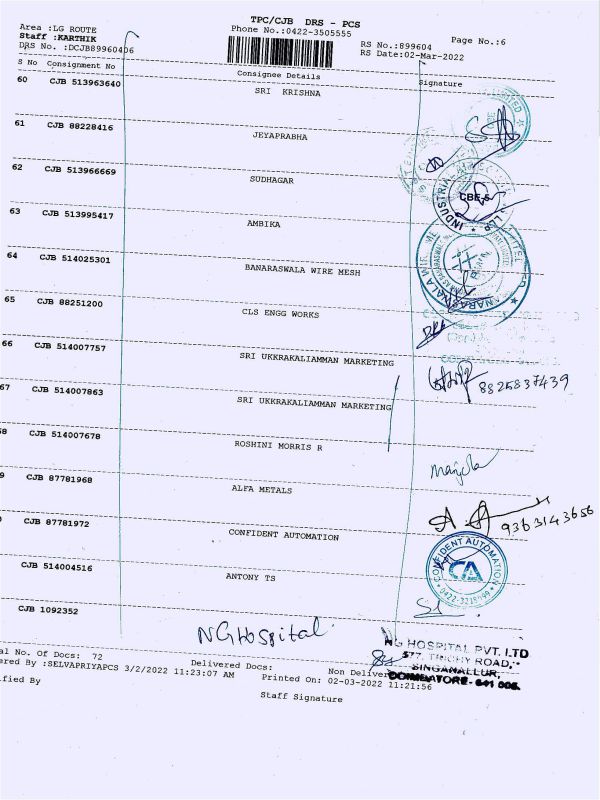 TPC/CJB DRS - PCS
Area :LG ROUTE
Phone No.:0422-3505555
Page No.:6
Staff :KARTHIK
RS No.:899604
DRS No. :DCJB89960406
RS Date:02-Mar-2022
S No Consignment No Consignee Details Signature
60 CJB 513963640 SRI KRISHNA
61 CJB 88228416 JEYAPRABHA
62 CJB 513966669 SUDHAGAR
CBE-5
INDUSTRIAL
63 CJB 513995417 AMBIKA
64 CJB 514025301 BANARASWALA WIRE MESH
65 CJB 88251200 CLS ENGG WORKS
66 CJB 514007757 SRI UKKRAKALIAMMAN MARKETING
8825837439
67 CJB 514007863 SRI UKKRAKALIAMMAN MARKETING
68 CJB 514007678 ROSHINI MORRIS R
9 CJB 87781968 ALFA METALS
9363143656
CJB 87781972 CONFIDENT AUTOMATION
CONFIDENT AUTOMATION
CA
CJB 514004516 ANTONY TS
CJB 1092352
NG Hospital
NG HOSPITAL PVT. LTD
577, TRICHY ROAD,
SINGANALLUR,
COIMBATORE - 641 005.
al No. Of Docs: 72 Delivered Docs: Non Deliver
ered By :SELVAPRIYAPCS 3/2/2022 11:23:07 AM Printed On: 02-03-2022 11:21:56
ified By Staff Signature